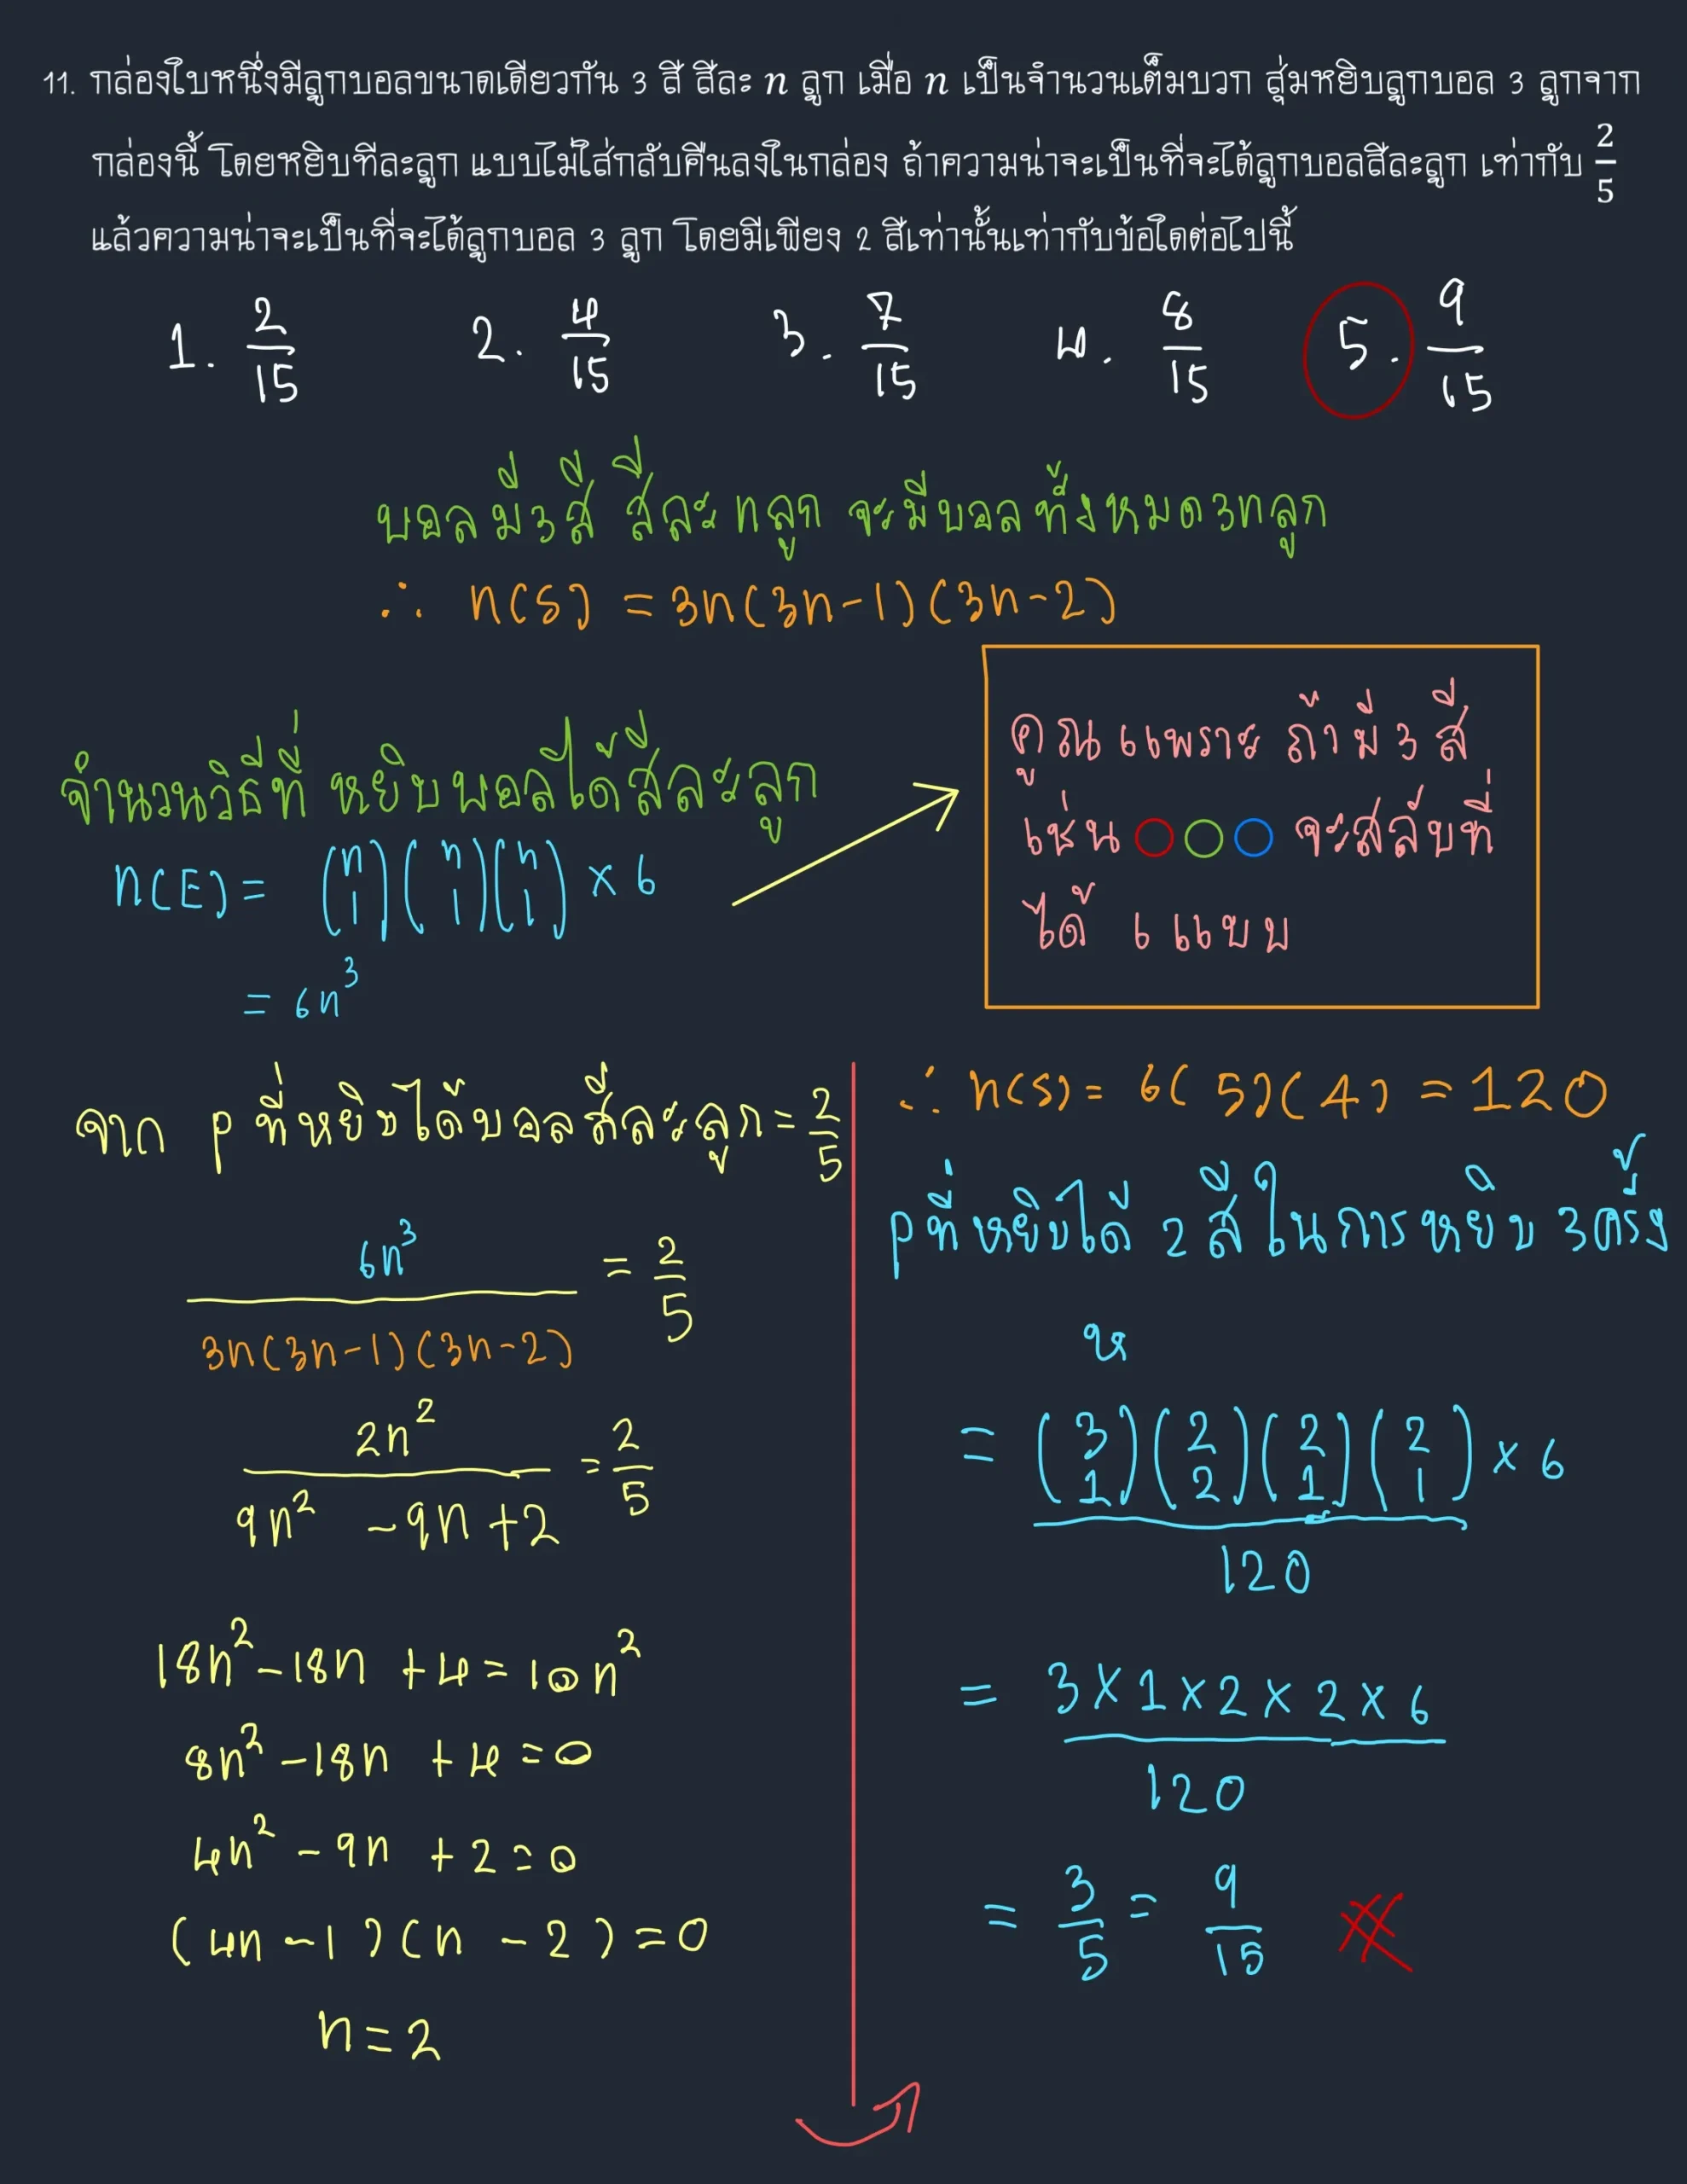 11. กล่องใบหนึ่งมีลูกบอลขนาดเดียวกัน 3 สี สีละ n ลูก เมื่อ n เป็นจำนวนเต็มบวก สุ่มหยิบลูกบอล 3 ลูกจาก
กล่องนี้ โดยหยิบทีละลูก แบบไม่ใส่กลับคืนลงในกล่อง ถ้าความน่าจะเป็นที่จะได้ลูกบอลสีละลูก เท่ากับ 2/5
แล้วความน่าจะเป็นที่จะได้ลูกบอล 3 ลูก โดยมีเพียง 2 สีเท่านั้นเท่ากับข้อใดต่อไปนี้
1. 2/15 2. 4/15 3. 7/15 4. 8/15 5. 9/15
บอลมี 3 สี สีละ n ลูก จะมีบอลทั้งหมด 3n ลูก
∴ n(S) = 3n(3n-1)(3n-2)
จำนวนวิธีที่ หยิบบอลได้สีละลูก
n(E) = (n 1)(n 1)(n 1) × 6
= 6n³
คูณ 6 เพราะ ถ้ามี 3 สี
เช่น ○○○ จะสลับที่
ได้ 6 แบบ
จาก P ที่หยิบได้บอลสีละลูก = 2/5
6n³ / 3n(3n-1)(3n-2) = 2/5
2n² / 9n² - 9n + 2 = 2/5
18n² - 18n + 4 = 10n²
8n² - 18n + 4 = 0
4n² - 9n + 2 = 0
(4n - 1)(n - 2) = 0
n = 2
∴ n(S) = 6(5)(4) = 120
P ที่หยิบได้ 2 สี ในการหยิบ 3 ครั้ง
ห
= (3 1)(2 2)(2 1)(2 1) × 6 / 120
= 3 × 1 × 2 × 2 × 6 / 120
= 3/5 = 9/15